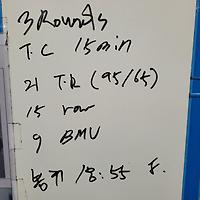 3 Rounds
T.C 15 min
21 T.R (95/65)
15 row
9 BMU
18:55